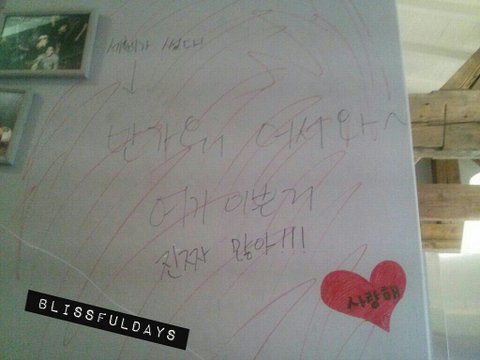 썼다!
반가워 어서와~
여기 이쁜거
진짜 많아!!!
사랑해
BLISSFULDAYS